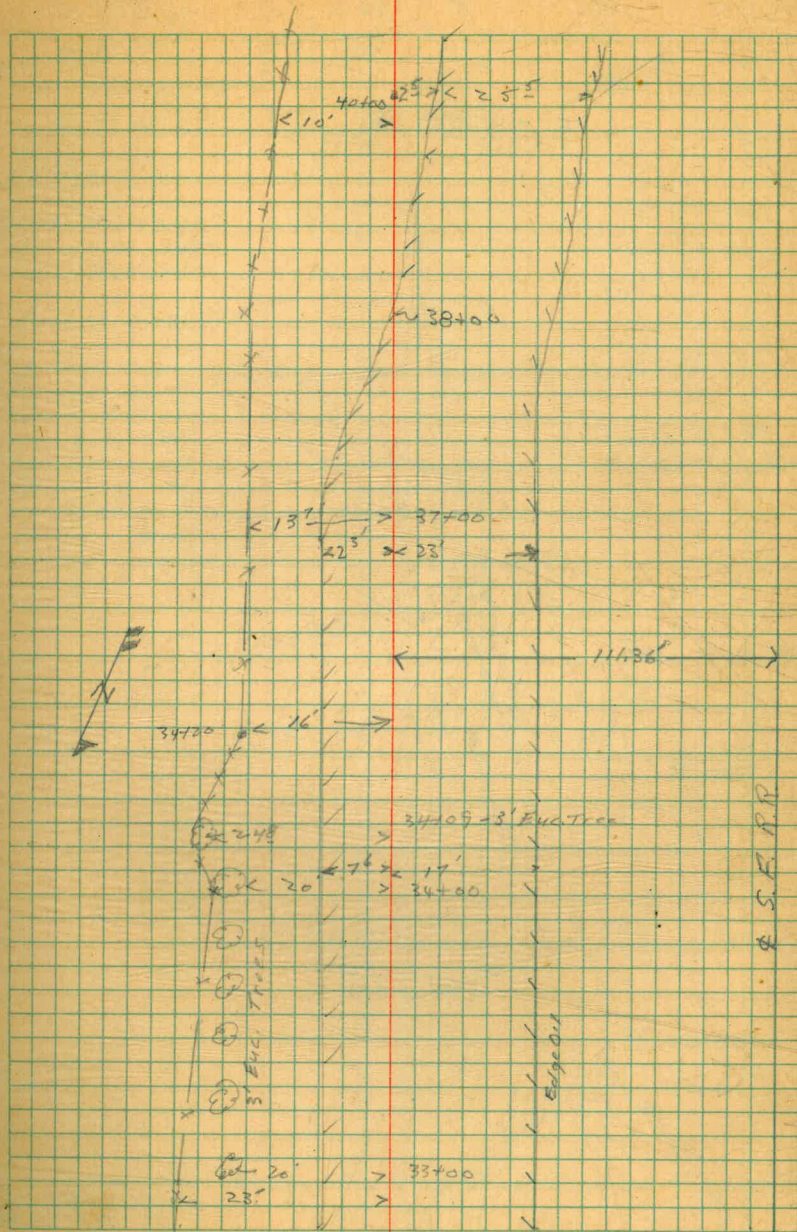 40+00 2⁵ 25⁵
10'
38+00
13⁷ 37+00
2³' 23'
111.36'
N
34+20 16'
34+09 - 3' Euc. Tree
24⁸
7⁶ 17'
20' 34+00
3' Euc. Trees
Edge Oil
℄ S.F. R.R.
20' 33+00
23'